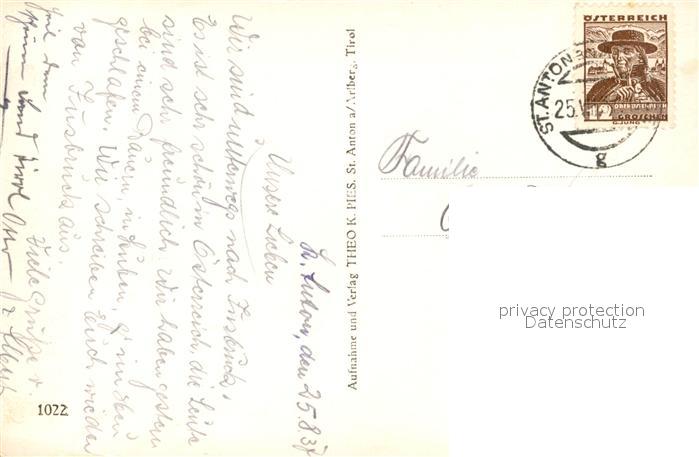 St. Anton, den 25.8.37
Unsere Lieben
Wir sind unterwegs nach Insbruck.
Es ist sehr schön in Österreich, die Leute
sind sehr freundlich. Wir haben gestern
bei einem Bauern, in Heuben,
geschlafen. Wir schreiben Euch wieder
von Insbruck aus.
Viele Grüße v.
Heil dem
schönen Land Tirol
Familie
Aufnahme und Verlag THEO K. PIES, St. Anton a/Arlberg, Tirol
1022
ÖSTERREICH
12
OBERÖSTERREICH
GROSCHEN
G. JUNG
ST. ANTON
25.V
g
privacy protection
Datenschutz